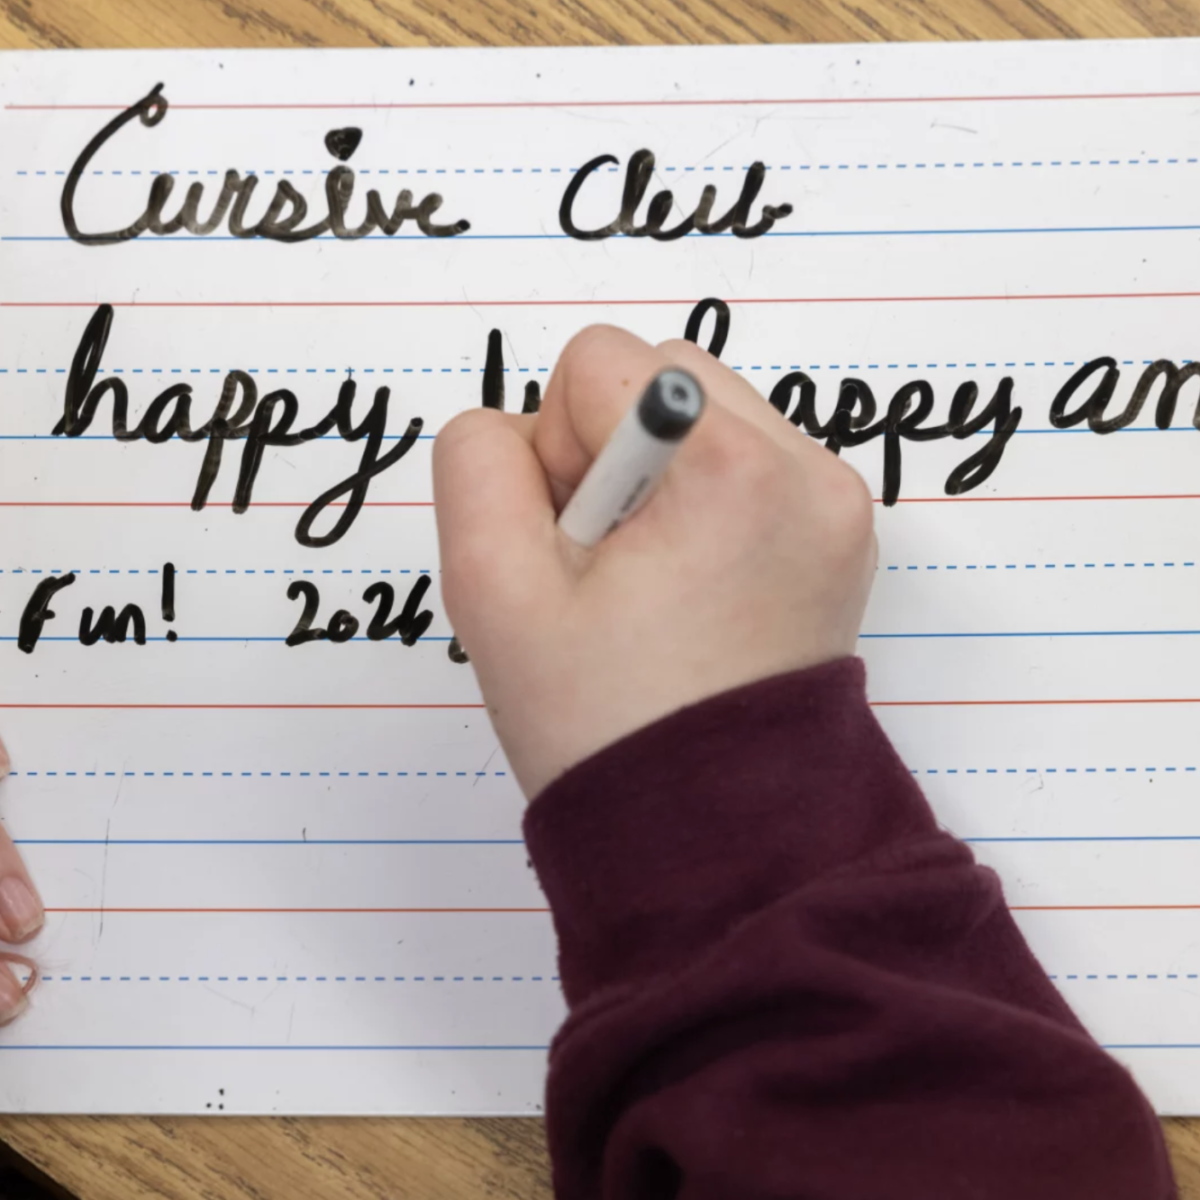 Cursive Club
happy happy
Fun! 2026